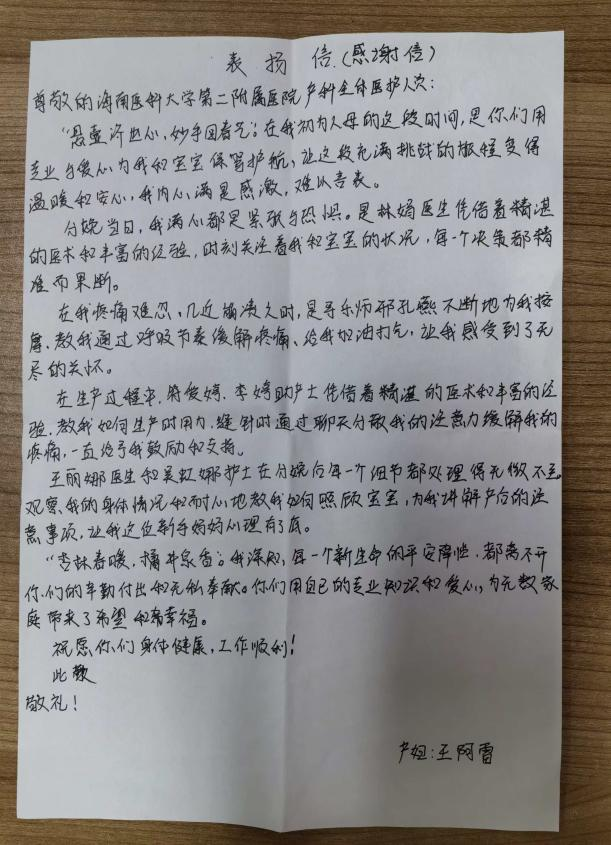 表扬信(感谢信)
尊敬的海南医科大学第二附属医院产科全体医护人员:
“悬壶济世心,妙手回春光”。在我初为人母的这段时间,是你们用
专业与爱心为我和宝宝保驾护航,让这段充满挑战的旅程变得
温暖和安心,我内心满是感激,难以言表。
分娩当日,我满心都是紧张与恐惧。是林娟医生凭借着精湛
的医术和丰富的经验,时刻关注着我和宝宝的状况,每一个决策都精
准而果断。
在我疼痛难忍,几近崩溃之时,是导乐师邢孔燕不断地为我按
摩、教我通过呼吸节奏缓解疼痛、给我加油打气,让我感受到了无
尽的关怀。
在生产过程中,符俊婷、李婷助产士凭借着精湛的医术和丰富的经
验,教我如何生产时用力,缝针时通过聊天分散我的注意力缓解我的
疼痛,一直给予我鼓励和支持。
王丽娜医生和吴虹娜护士在分娩后每一个细节都处理得无微不至。
观察我的身体情况和耐心地教我如何照顾宝宝,为我讲解产后的注
意事项,让我这位新手妈妈心理有了底。
“杏林春暖,橘井泉香”。我深知,每一个新生命的平安降临,都离不开
你们的辛勤付出和无私奉献。你们用自己的专业知识和爱心,为无数家
庭带来了希望和幸福。
祝愿你们身体健康,工作顺利!
此致
敬礼!
产妇:王阿雪